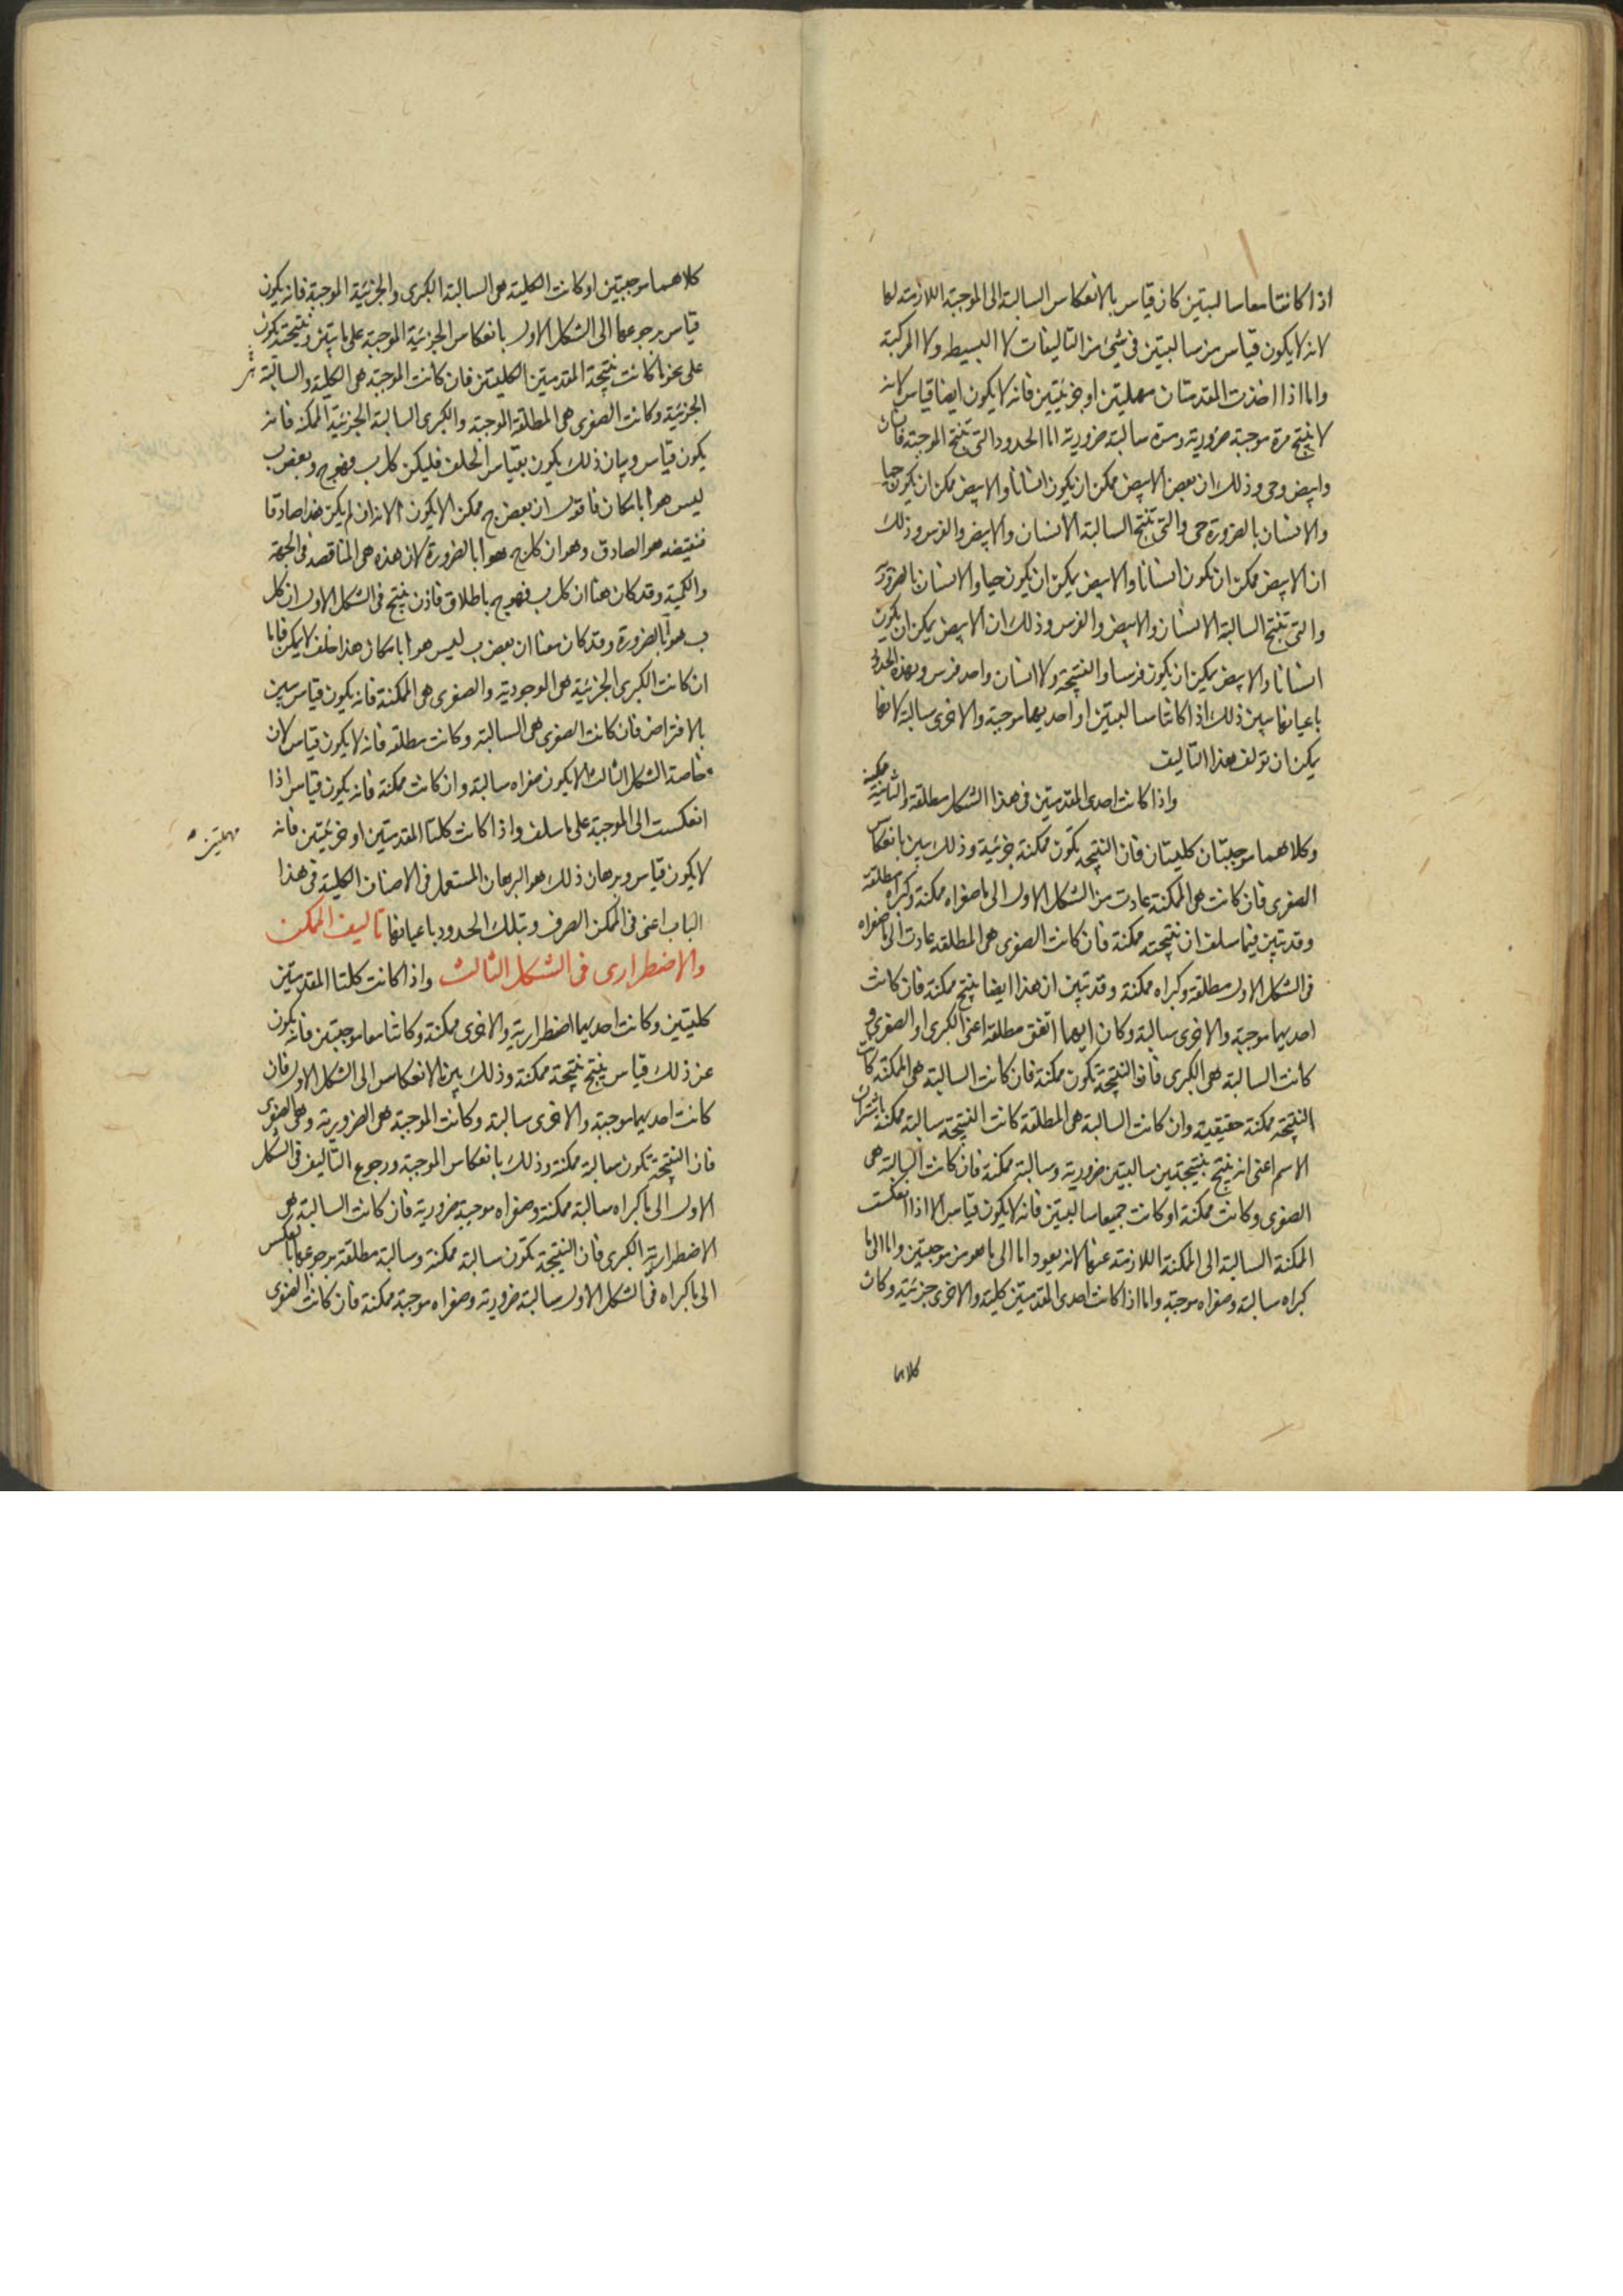 اذا كانتا معا سالبتين كان قياس بالانعكاس السالبة الى الموجبة اللازمة لها
لانه لا يكون قياس من سالبتين فى شئ من التاليفات لا البسيط ولا المركبة
واما اذا اخذت المقدمتان مهملتين او جزئيتين فانه لا يكون ايضا قياس لانه
لا ينتج مرة موجبة ضرورية ومرة سالبة ضرورية اما الحدود التى تنتج الموجبة فانسان
وابيض وحى وذلك ان بعض الابيض ممكن ان يكون انسانا والابيض ممكن ان يكون حيا
والانسان بالضرورة حى والتى تنتج السالبة الانسان والابيض والفرس وذلك
ان الابيض ممكن ان يكون انسانا والابيض يمكن ان يكون حيا والانسان بالضرورة
والتى تنتج السالبة الانسان والابيض والفرس وذلك ان الابيض يمكن ان يكون
انسانا والابيض يمكن ان يكون فرسا والنتيجة ولا انسان واحد فرس وبهذه الحدود
باعيانها يبين ذلك اذا كانتا سالبتين او احديهما موجبة والاخرى سالبة لانها
يمكن ان تولف هذا التاليف
واذا كانت احدى المقدمتين فى هذا الشكل مطلقة والثانية ممكنة
وكلاهما موجبتان كليتان فان النتيجة تكون ممكنة جزئية وذلك يبين بانعكاس
الصغرى فان كانت هى الممكنة عادت من الشكل الاول الى ما صغراه ممكنة وكبراه مطلقة
وقد تبين فيما سلف ان نتيجته ممكنة فان كانت الصغرى هى المطلقة عادت الى ما صغراه
فى الشكل الاول مطلقة وكبراه ممكنة وقد تبين ان هذا ايضا ينتج ممكنة فان كانت
احديهما موجبة والاخرى سالبة وكان ايهما اتفق مطلقة اعنى الكبرى او الصغرى و
كانت السالبة هى الكبرى فان النتيجة تكون ممكنة فان كانت السالبة هى الممكنة كانت
النتيجة ممكنة حقيقية وان كانت السالبة هى المطلقة كانت النتيجة سالبة ممكنة باشتراك
الاسم اعنى انه ينتج نتيجتين سالبتين ضرورية وسالبة ممكنة فان كانت السالبة هى
الصغرى وكانت ممكنة او كانت جميعا سالبتين فانه لا يكون قياس الا اذا انعكست
الممكنة السالبة الى الممكنة اللازمة عنها لانه يعود اما الى ما هو من موجبتين واما الى ما
كبراه سالبة وصغراه موجبة واما اذا كانت احدى المقدمتين كلية والاخرى جزئية وكان
كلاهما
كلاهما موجبتين او كانت الكلية هى السالبة الكبرى والجزئية الموجبة فانه يكون
قياس برجوعها الى الشكل الاول بانعكاس الجزئية الموجبة على ما تبين ونتيجته تكون
على نحو ما كانت نتيجة المقدمتين الكليتين فان كانت الموجبة هى الكلية والسالبة
الجزئية وكانت الصغرى هى المطلقة الموجبة والكبرى السالبة الجزئية الممكنة فانه
يكون قياس وبيان ذلك يكون بقياس الخلف فليكن كل ب فهو ج وبعض ب
ليس هو ا بامكان فاقول ان بعض ج ممكن الا يكون ا لانه ان لم يكن هذا صادقا
فنقيضه هو الصادق وهو ان كل ج هو ا بالضرورة لان هذه هى المناقضة فى الجهة
والكمية وقد كان هنا ان كل ب فهو ج باطلاق فاذن ينتج فى الشكل الاول ان كل
ب هو ا بالضرورة وقد كان معنا ان بعض ب ليس هو ا بامكان هذا خلف لا يمكن فاما
ان كانت الكبرى الجزئية هى الوجودية والصغرى هى الممكنة فانه يكون قياس يبين
بالافتراض فان كانت الصغرى هى السالبة وكانت مطلقة فانه لا يكون قياس لان
خاصة الشكل الثالث الا يكون صغراه سالبة وان كانت ممكنة فانه يكون قياس اذا
انعكست الى الموجبة على ما سلف واذا كانت كلتا المقدمتين او جزئيتين فانه
مهملتين
لا يكون قياس وبرهان ذلك هو البرهان المستعمل فى الاصناف الكلية فى هذا
الباب اعنى فى الممكن الصرف وبتلك الحدود باعيانها تاليف الممكن
والاضطرارى فى الشكل الثالث واذا كانت كلتا المقدمتين
كليتين وكانت احديهما اضطرارية والاخرى ممكنة وكانتا معا موجبتين فانه يكون
عن ذلك قياس ينتج نتيجة ممكنة وذلك بين بالانعكاس الى الشكل الاول فان
كانت احديهما موجبة والاخرى سالبة وكانت الموجبة هى الضرورية وهى الصغرى
فان النتيجة تكون سالبة ممكنة وذلك بانعكاس الموجبة ورجوع التاليف فى الشكل
الاول الى ما كبراه سالبة ممكنة وصغراه موجبة ضرورية فان كانت السالبة هى
الاضطرارية الكبرى فان النتيجة تكون سالبة ممكنة وسالبة مطلقة برجوعها بالعكس
الى ما كبراه فى الشكل الاول سالبة ضرورية وصغراه موجبة ممكنة فان كانت الصغرى